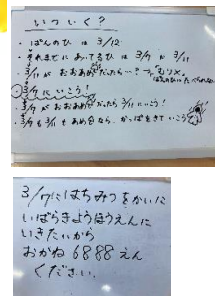 いついく？
・ほんのひ は 3/12
・それまでに あいてるひは 3/7 と 3/11
・3/11 が おおあめだったら…？→むり×
・3/7 に いこう！
・3/7 が おおあめだったら 3/11 に いこう！
・3/7 も 3/11 も あめなら、かっぱをきて いこう
3/7に はちみつをかいに
いばらきようほうえんに
いきたいから
おかね 6888 えん
ください。